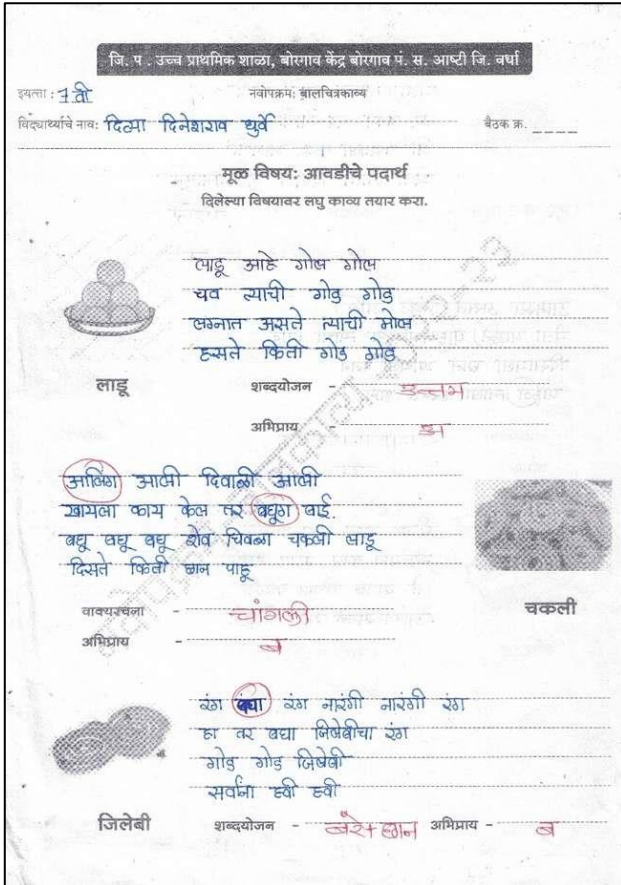 जि. प. उच्च प्राथमिक शाळा, बोरगाव केंद्र बोरगाव पं. स. आष्टी जि. वर्धा
इयत्ता : 7 वी
नवोपक्रम: बालचित्रकाव्य
विद्यार्थ्याचे नाव: दित्या दिनेशराव धुर्वे
बैठक क्र. _ _ _ _
मूळ विषय: आवडीचे पदार्थ
दिलेल्या विषयावर लघु काव्य तयार करा.
लाडू आहे गोल गोल
चव त्याची गोड गोड
लग्नात असते त्याची मोल
हसते किती गोड गोड
लाडू
शब्दयोजन - उत्तम
अभिप्राय - अ
आलिंग आली दिवाळी आली
खायला काय केल तर बघूग बाई.
बघू बघू बघू शेव चिवळा चकली लाडू
दिसते किती छान पाहू
वाक्यरचना - चांगली
अभिप्राय - ब
चकली
रंग बघा रंग नारंगी नारंगी रंग
हा तर बघा जिलेबीचा रंग
गोड गोड जिलेबी
सर्वांना हवी हवी
जिलेबी
शब्दयोजन - छान अभिप्राय - ब